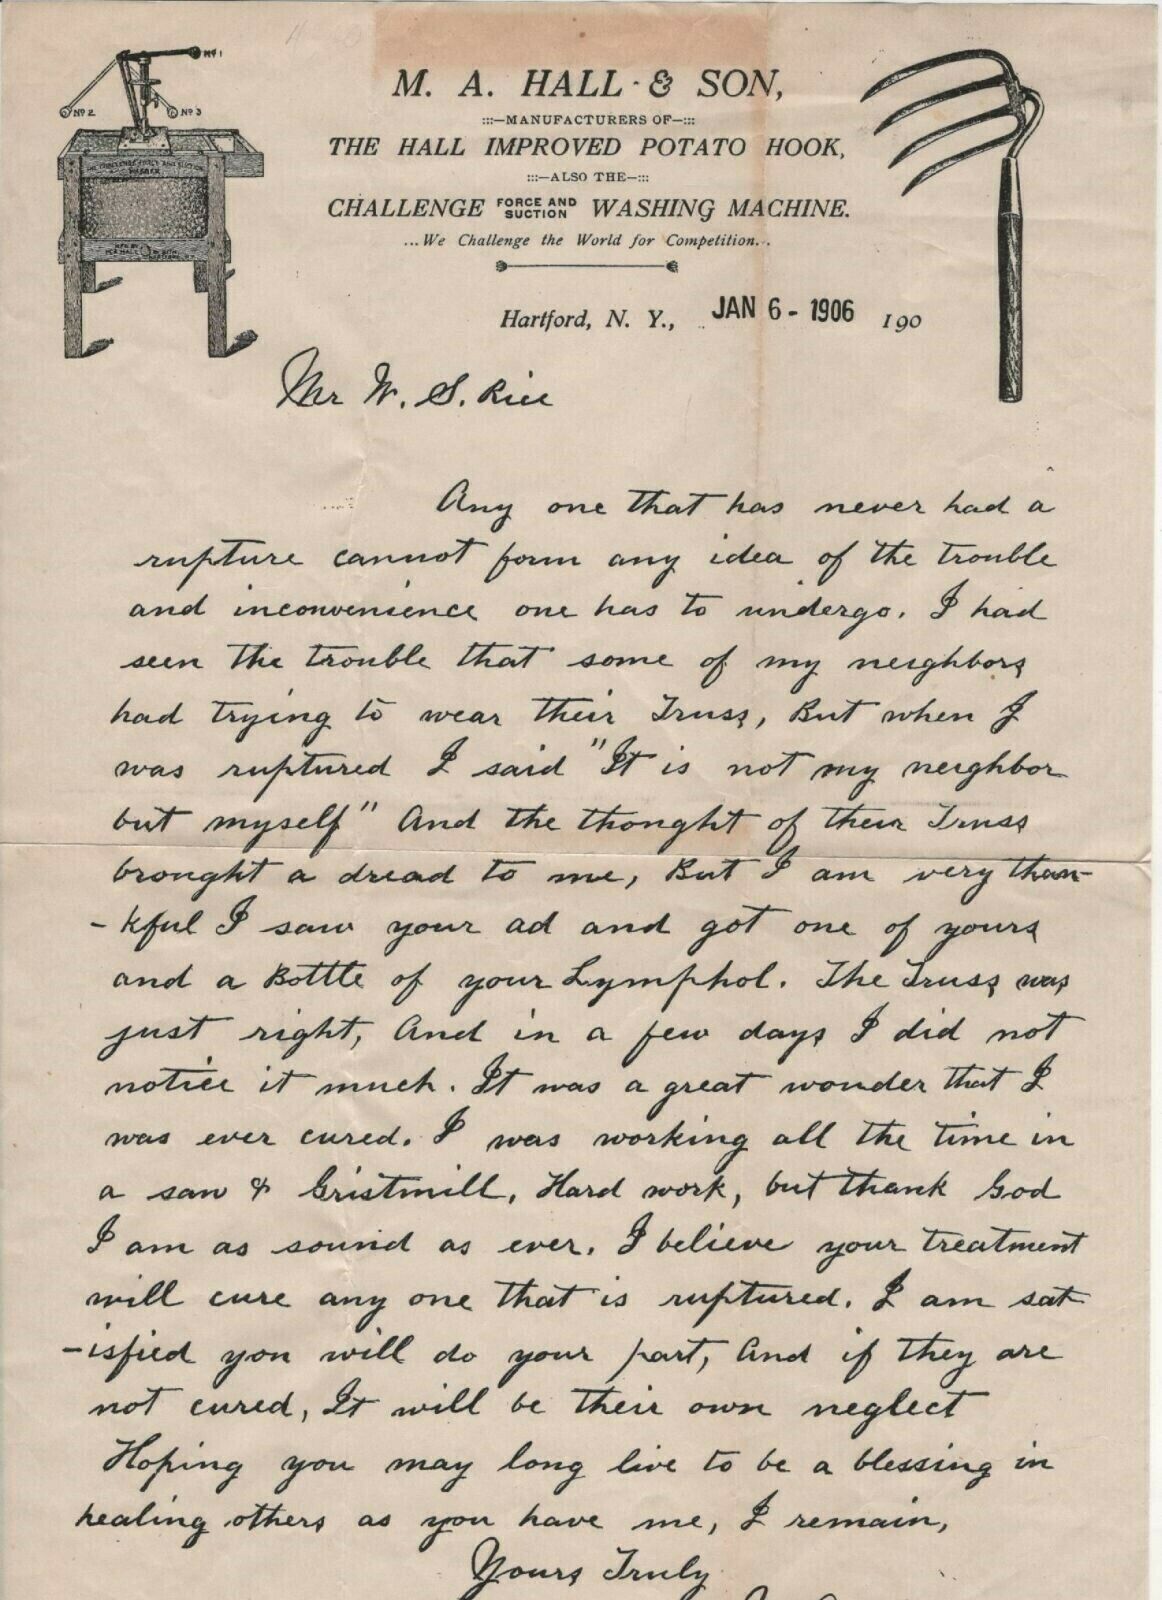 M. A. HALL & SON,
:::—MANUFACTURERS OF—:::
THE HALL IMPROVED POTATO HOOK,
:::—ALSO THE—:::
CHALLENGE FORCE AND SUCTION WASHING MACHINE.
...We Challenge the World for Competition...
Nº 1
Nº 2
Nº 3
Hartford, N. Y., JAN 6 - 1906 190
Mr W. S. Rice
Any one that has never had a
rupture cannot form any idea of the trouble
and inconvenience one has to undergo. I had
seen the trouble that some of my neighbors
had trying to wear their Truss, But when I
was ruptured I said "It is not my neighbor
but myself" And the thought of their Truss
brought a dread to me, But I am very than-
-kful I saw your ad and got one of yours
and a Bottle of your Lymphol. The Truss was
just right, And in a few days I did not
notice it much. It was a great wonder that I
was ever cured. I was working all the time in
a saw & Gristmill, Hard work, but thank God
I am as sound as ever. I believe your treatment
will cure any one that is ruptured. I am sat
-isfied you will do your part, And if they are
not cured, It will be their own neglect
Hoping you may long live to be a blessing in
healing others as you have me, I remain,
Yours Truly